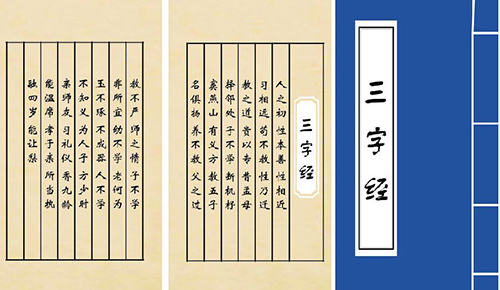 三字经
三字经
人之初性本善性相近
习相远苟不教性乃迁
教之道贵以专昔孟母
择邻处子不学断机杼
窦燕山有义方教五子
名俱扬养不教父之过
教不严师之惰子不学
非所宜幼不学老何为
玉不琢不成器人不学
不知义为人子方少时
亲师友习礼仪香九龄
能温席孝于亲所当执
融四岁能让梨